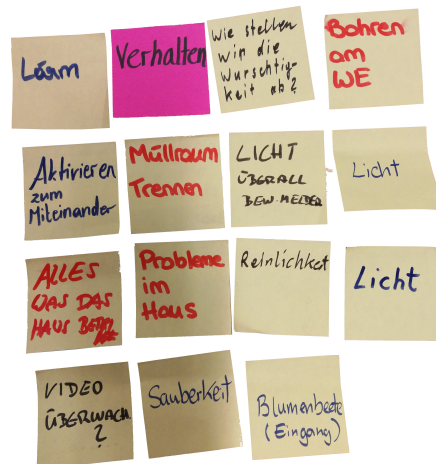 Lärm
Verhalten
Wie stellen
wir die
Wurschtig-
keit ab?
Bohren
am
WE
Aktivieren
zum
Miteinander
Müllraum
Trennen
LICHT
ÜBERALL
BEW.MELDER
Licht
ALLES
WAS DAS
HAUS
Probleme
im
Haus
Reinlichkeit
Licht
VIDEO
ÜBERWACH.
?
Sauberkeit
Blumenbeete
(Eingang)